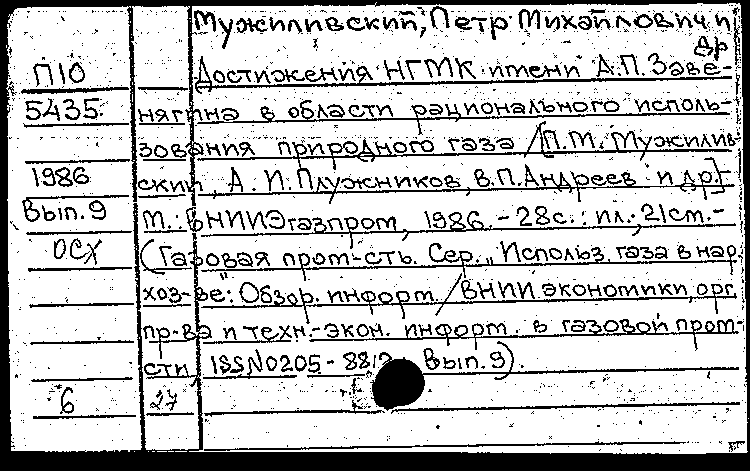 Мужиливский, Петр Михайлович и
др
П10
Достижения НГМК имени А.П.Заве-
5435.
нягина в области рационального исполь-
зования природного газа /[П.М. Мужилив-
1986
ский, А.И.Плужников, В.П.Андреев и др.]-
Вып.9
М.: ВНИИЭгазпром, 1986.-28с.: ил.; 21см.-
ОСХ
(Газовая пром-сть. Сер. "Использ. газа в нар.
хоз-ве": Обзор. информ. / ВНИИ экономики, орг.
пр-ва и техн.-экон. информ. в газовой пром-
сти, ISSN0205- Вып.9).
6
27